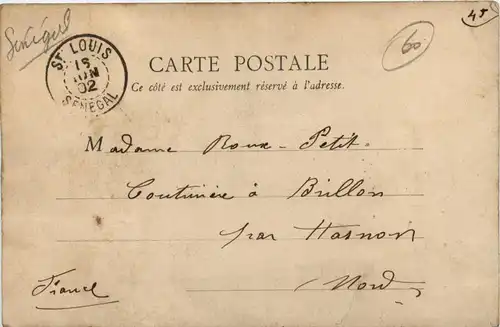 Sénégal
45
60
ST LOUIS
16
JUIN
02
SENEGAL
CARTE POSTALE
Ce côté est exclusivement réservé à l'adresse.
Madame Roux-Petit
Couturière à Brillon
par Hasnon
Nord
France